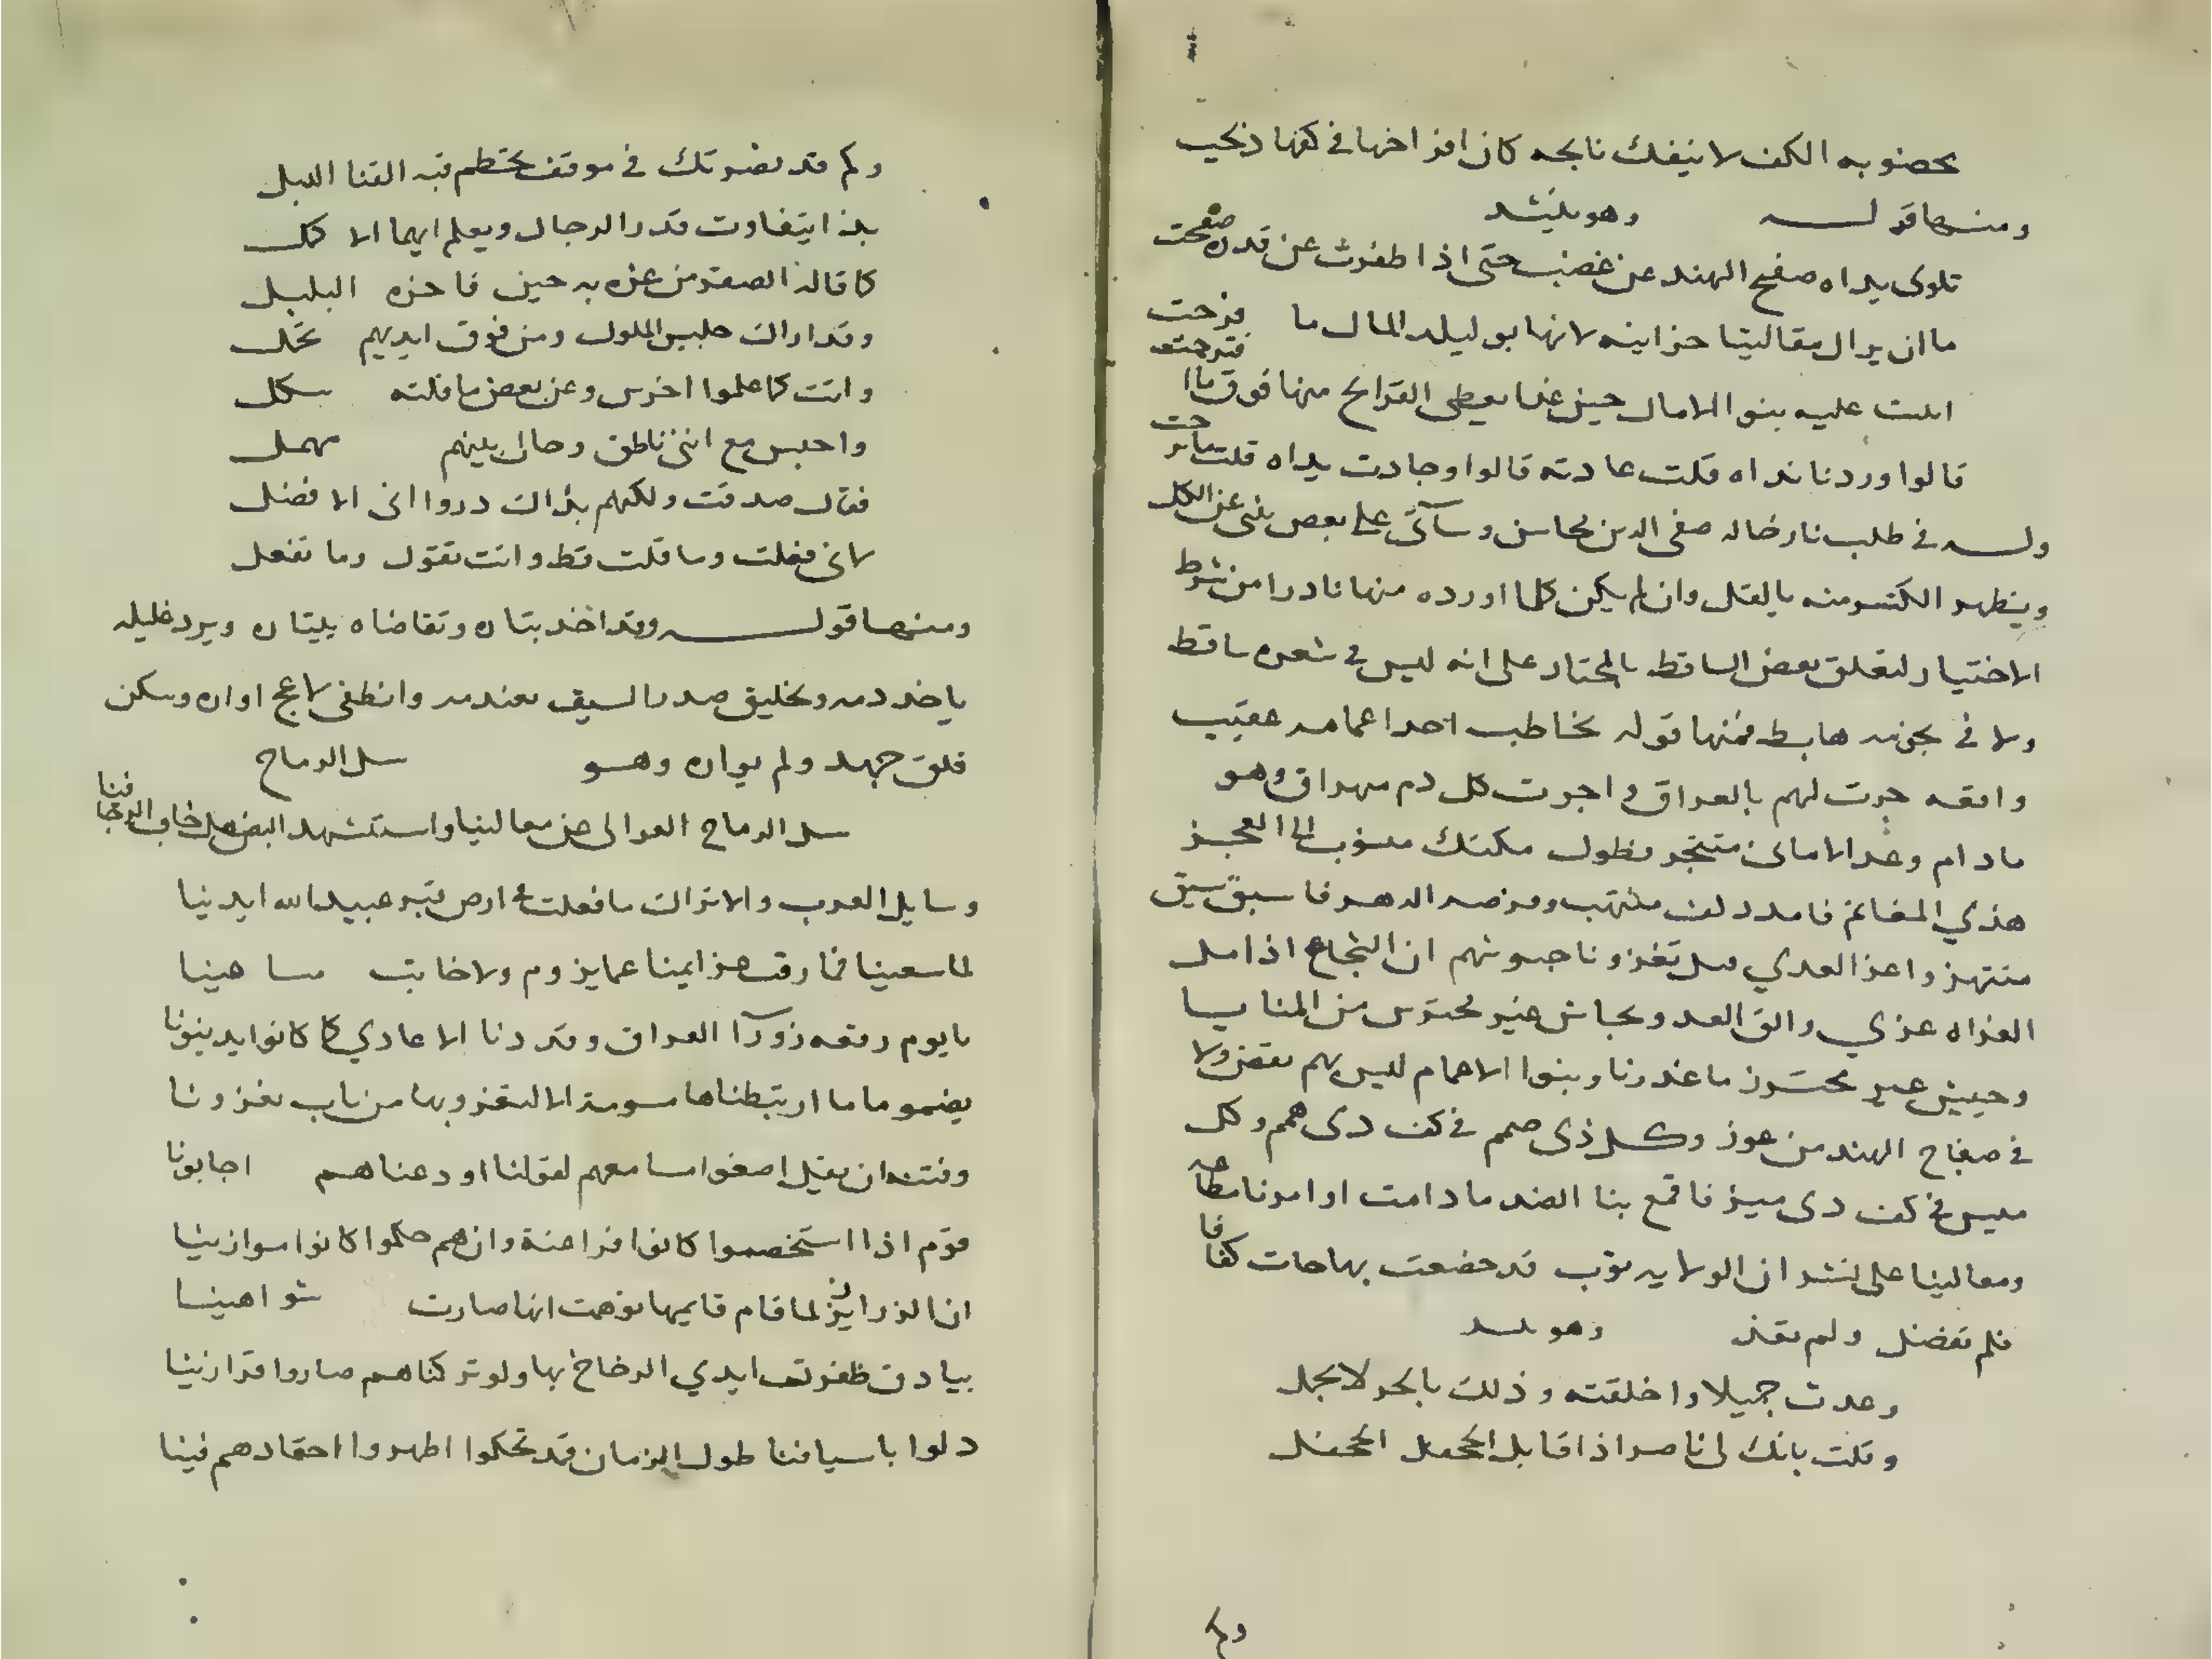 مخضوبه الكف لا ينفك نابحه كان افراخها في كفها ذبحت
ومنها قوله وهو ينشد
تلوى يداه صفيح الهند عن غضب حتى اذا ظفرت عن قدره صفحت
ما ان يزال مقاليتا خزاينه لانها بو ليلد المال ما فرحت
املت عليه بنو الامال حين غدا يعطي القرايح منها فوق ما اقترحت
قالوا وردنا نداه قلت عادته قالوا وجادت يداه قلت ما برحت
وله في طلب ثار خاله صفي الدين محاسن وسآتي على بعض يغني عن الكل
ويظهر الكثير منه بالقل وان لم يكن كلما اورده منها نادرا من شرط
الاختيار لتعلق بعض الساقط بالمختار على انه ليس في شعره ساقط
ولا في بحوره هابط فمنها قوله يخاطب احد اعمامه عقيب
واقعه جرت لهم بالعراق واجرت كل دم مهراق وهو
ما دام وعد الاماني منتجز فطول مكثك منسوب الى العجز
هذي المغانم فامدد كف منتهب وفرصه الدهر فاسبق سبق
منتهز واغز العدي قبل تغزونا جيوشهم ان الشجاع اذا مل
الغزاه غزي والق العدو بجاش غير محترس من المنايا
وجيش غير محترز ما عذرنا وبنوا الاعمام ليس بهم نقص ولا
في صفاح الهند من عوز وكل ذي صمم في كف ذي همم وكل
ميس في كف ذي ميز فاقمع بنا الضد ما دامت اوامرنا مطاعه
ومعالينا على نشز ان الولايه ثوب قد خصصت بها جات كفافا
فلم تفضل ولم تعز وهو ينشد
وعدت جميلا واخلفته وذلك بالحر لا يجمل
وقلت بانك لي ناصر اذا قابل الجحفل الجحفل
وكم
وكم قد نصرتك في موقف تحطم فيه القنا الذبل
بذا يتفاوت قدر الرجال ويعلم ايهما الاكمل
كما قاله الصقر من عزه به حين فاخره البلبل
وقد اراك جليس الملوك ومن فوق ايديهم تحمل
وانت كما علموا اخرس وعن بعض ما قلته تنكل
واحبس مع انني ناطق وحالي بينهم مهمل
فقال صدقت ولكنهم بذاك دروا اني الافضل
لاني فعلت وما قلت قط وانت تقول وما تفعل
ومنها قوله وقد اخذ بثاره وتقاضاه بيتاره ويرد غليله
ياخذ دمه وتخليق صدر السيف بعندمه وانطفي لاعج اواره وسكن
قلق جهد ولم يواره وهو سل الرماح
سل الرماح العوالي عن معالينا واستشهد البيض هل خاب الرجا فينا
وسايل العرب والاتراك ما فعلت في ارض قبر عبيد الله ايدينا
لما سعينا فما رقت عزايمنا عما يزوم ولا خابت مساعينا
يا يوم وقعه زورآ العراق وقد دنا الاعادي كما كانوا يدينونا
بضمر ما ارتبطناها مسومة الا لنغزو بها من بات يغزونا
وفتيه ان يقل اصغوا مسامعهم لقولنا او دعناهم اجابونا
قوم اذا استخصموا كانوا فراعنة وان هم حكموا كانوا موازينا
ان الزرازير لما قام قايمها توهمت انها صارت شواهينا
بيادق ظفرت ايدي الرخاخ بها ولو تركناهم صاروا فرازينا
دلوا باسيافنا طول الزمان فمذ تحكموا اظهروا احقادهم فينا